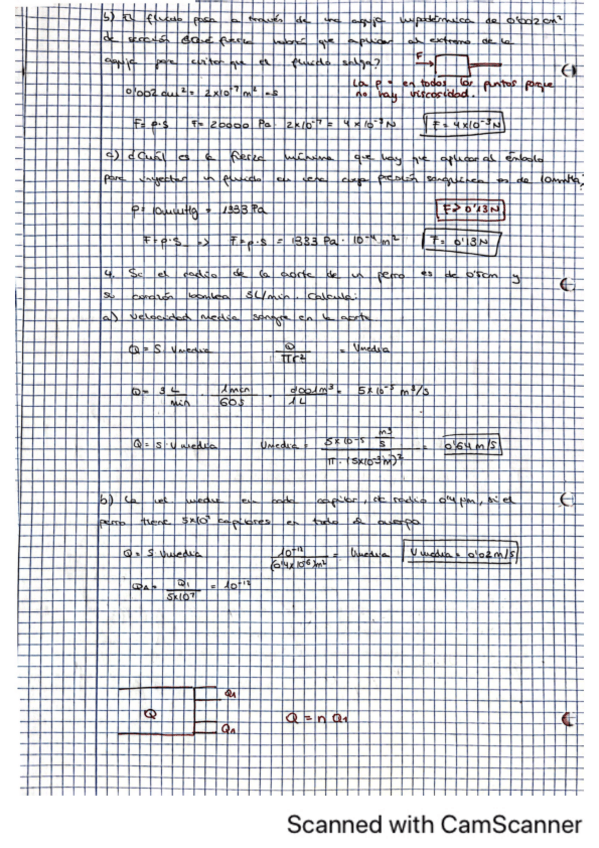 b) El fluido pasa a través de una aguja hipodérmica de 0'002 cm²
de sección ¿Qué fuerza habrá que aplicar al extremo de la
aguja para evitar que el fluido salga?
F
La p = en todos los puntos porque
no hay viscosidad.
0'002 cm² = 2x10⁻⁷ m²
F = p·s F = 20000 Pa · 2x10⁻⁷ = 4x10⁻³ N F = 4x10⁻³ N
c) ¿Cuál es la fuerza mínima que hay que aplicar al émbolo
para inyectar un fluido en vena cuya presión sanguínea es de 10mmHg?
p = 10mmHg = 1333 Pa F > 0'13 N
F = p·s => F = p·s = 1333 Pa · 10⁻⁴ m² F = 0'13 N
4. Si el radio de la aorta de un perro es de 0'5cm y
su corazón bombea 3L/min. Calcula:
a) Velocidad media sangre en la aorta
Q = S · Vmedia Q/πr² = Vmedia
Q = 3 L/min · 1min/60s · 0'001m³/1L = 5x10⁻⁵ m³/s
Q = S · Vmedia Vmedia = 5x10⁻⁵ m³/s / π · (5x10⁻³m)² = 0'64 m/s
b) La vel media en cada capilar, de radio 0'4 µm, si el
perro tiene 5x10⁷ capilares en todo el cuerpo
Q = S Vmedia = Vmedia Vmedia = 0'02 m/s
Q₁ / 5x10⁷ = 10⁻¹²
Q Q₁
Q = n Q₁
Q₁
Scanned with CamScanner